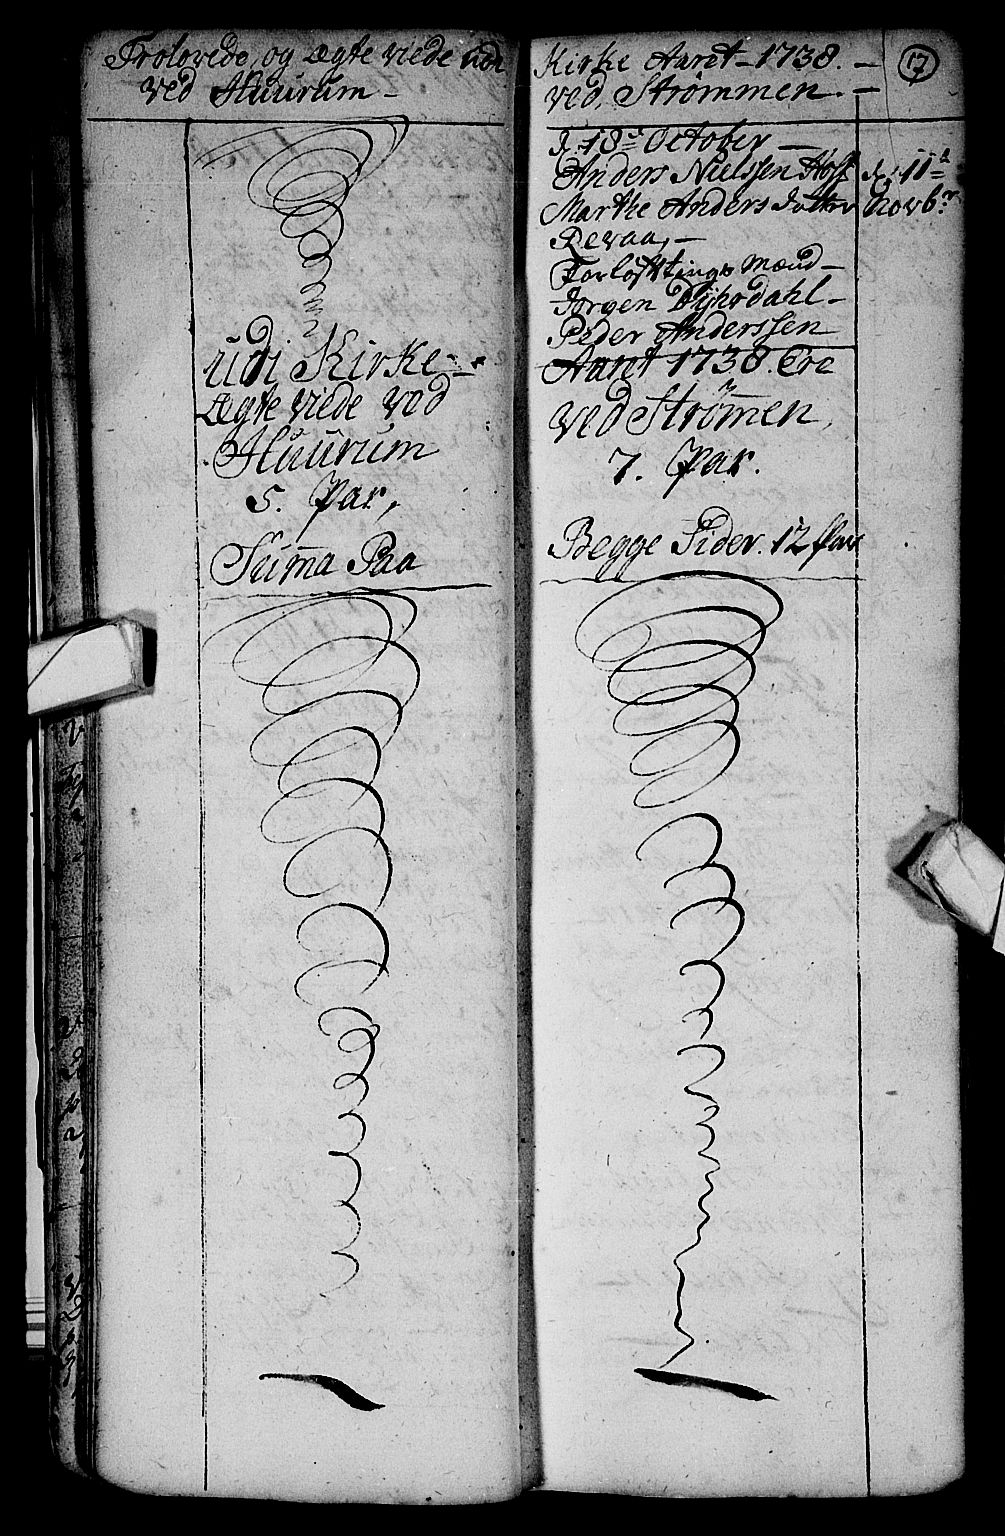 Trolovede, og Ægte viede udi
ved Huurum –
udi Kirke –
Ægte viede ved
Huurum
5. Par,
Suma Paa
Kirke Aaret – 1738. –
ved Strømmen. –
17
d. 18 October –
Anders Nielssen d. 11
Marthe Anders novb.
Revaa, –
Forløftnings Mænd –
Jørgen Dyhrdahl –
Peder Anderssen
Aaret 1738. Ere
ved Strømen
7. Par.
Begge Sider. 12 Par